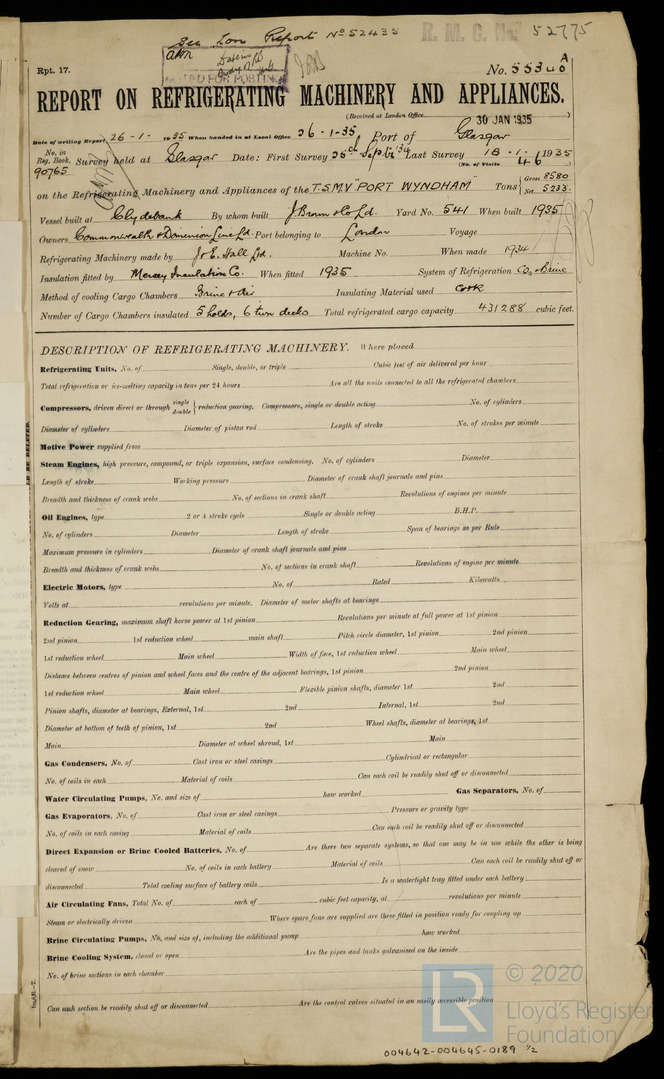 See Lon Report No 52435
R. M. C. No. 52775
Rpt. 17.
A
No. 55326
REPORT ON REFRIGERATING MACHINERY AND APPLIANCES.
(Received at London Office 30 JAN 1935)
Date of writing Report 26-1-1935 When handed in at Local Office 26-1-35 Port of Glasgow
No. in Reg. Book. Survey held at Glasgow Date: First Survey 25th Sept 34 Last Survey 18-1-1935
(No. of Visits 46)
90765
on the Refrigerating Machinery and Appliances of the T.S.M.V "PORT WYNDHAM" Tons { Gross 8580
Net 5233
Vessel built at Clydebank By whom built J Brown & Co Ld. Yard No. 541 When built 1935
Owners Commonwealth & Dominion Line Ld. Port belonging to London Voyage
Refrigerating Machinery made by J & E. Hall Ltd. Machine No. When made 1934
Insulation fitted by Mersey Insulation Co. When fitted 1935 System of Refrigeration CO2 & Brine
Method of cooling Cargo Chambers Brine & Air Insulating Material used Cork
Number of Cargo Chambers insulated 5 holds, 6 twn decks Total refrigerated cargo capacity 431288 cubic feet.
DESCRIPTION OF REFRIGERATING MACHINERY. Where placed
Refrigerating Units, No. of Single, double, or triple Cubic feet of air delivered per hour
Total refrigeration or ice-melting capacity in tons per 24 hours Are all the units connected to all the refrigerated chambers
Compressors, driven direct or through single double } reduction gearing. Compressors, single or double acting No. of cylinders
Diameter of cylinders Diameter of piston rod Length of stroke No. of strokes per minute
Motive Power supplied from
Steam Engines, high pressure, compound, or triple expansion, surface condensing. No. of cylinders Diameter
Length of stroke Working pressure Diameter of crank shaft journals and pins
Breadth and thickness of crank webs No. of sections in crank shaft Revolutions of engines per minute
Oil Engines, type 2 or 4 stroke cycle Single or double acting B.H.P.
No. of cylinders Diameter Length of stroke Span of bearings as per Rule
Maximum pressure in cylinders Diameter of crank shaft journals and pins
Breadth and thickness of crank webs No. of sections in crank shaft Revolutions of engine per minute
Electric Motors, type No. of Rated Kilowatts
Volts at revolutions per minute. Diameter of motor shafts at bearings
Reduction Gearing, maximum shaft horse power at 1st pinion Revolutions per minute at full power at 1st pinion
2nd pinion 1st reduction wheel main shaft Pitch circle diameter, 1st pinion 2nd pinion
1st reduction wheel Main wheel Width of face, 1st reduction wheel Main wheel
Distance between centres of pinion and wheel faces and the centre of the adjacent bearings, 1st pinion 2nd pinion
1st reduction wheel Main wheel Flexible pinion shafts, diameter 1st 2nd
Pinion shafts, diameter at bearings, External, 1st 2nd Internal, 1st 2nd
Diameter at bottom of teeth of pinion, 1st 2nd Wheel shafts, diameter at bearings, 1st
Main Diameter at wheel shroud, 1st Main
Gas Condensers, No. of Cast iron or steel casings Cylindrical or rectangular
No. of coils in each Material of coils Can each coil be readily shut off or disconnected
Water Circulating Pumps, No. and size of how worked Gas Separators, No. of
Gas Evaporators, No. of Cast iron or steel casings Pressure or gravity type
No. of coils in each casing Material of coils Can each coil be readily shut off or disconnected
Direct Expansion or Brine Cooled Batteries, No. of Are there two separate systems, so that one may be in use while the other is being
cleared of snow No. of coils in each battery Material of coils Can each coil be readily shut off or
disconnected Total cooling surface of battery coils Is a watertight tray fitted under each battery
Air Circulating Fans, Total No. of each of cubic feet capacity, at revolutions per minute
Steam or electrically driven Where spare fans are supplied are these fitted in position ready for coupling up
Brine Circulating Pumps, No. and size of, including the additional pump how worked
Brine Cooling System, closed or open Are the pipes and tanks galvanised on the inside
No. of brine sections in each chamber
Can each section be readily shut off or disconnected Are the control valves situated in an easily accessible position
LR © 2020
Lloyd's Register
Foundation
004642-004645-0189 1/2